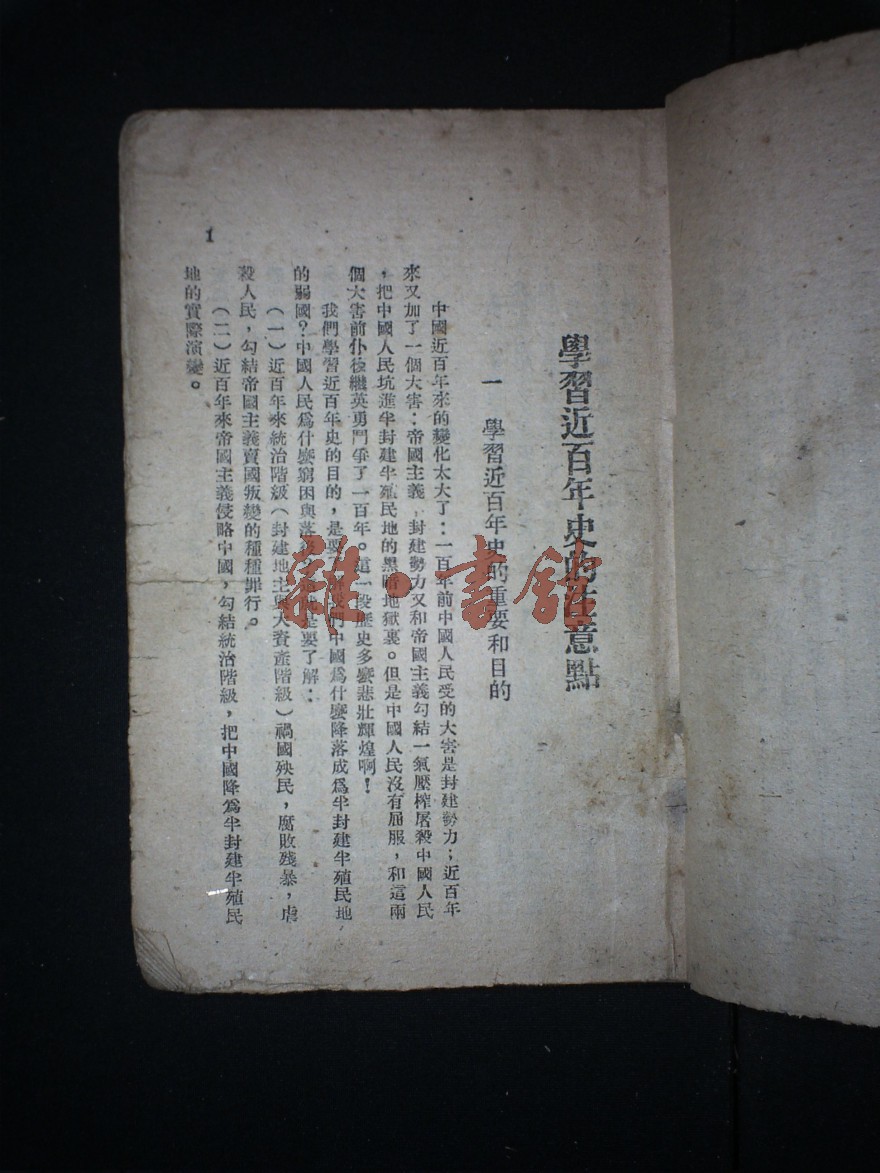 學習近百年史的注意點
一 學習近百年史的重要和目的
中國近百年來的變化太大了：一百年前中國人民受的大害是封建勢力；近百年
來又加了一個大害：帝國主義，封建勢力又和帝國主義勾結一氣壓榨屠殺中國人民
，把中國人民坑進半封建半殖民地的黑暗地獄裏。但是中國人民沒有屈服，和這兩
個大害前仆後繼英勇鬥爭了一百年。這一段歷史多麼悲壯輝煌啊！
我們學習近百年史的目的，是要了解我們中國爲什麼降落成爲半封建半殖民地
的弱國？中國人民爲什麼窮困與落後？就是要了解：
（一）近百年來統治階級（封建地主與大資產階級）禍國殃民，腐敗殘暴，虐
殺人民，勾結帝國主義賣國叛變的種種罪行。
（二）近百年來帝國主義侵略中國，勾結統治階級，把中國降爲半封建半殖民
地的實際演變。
1
雜·書館